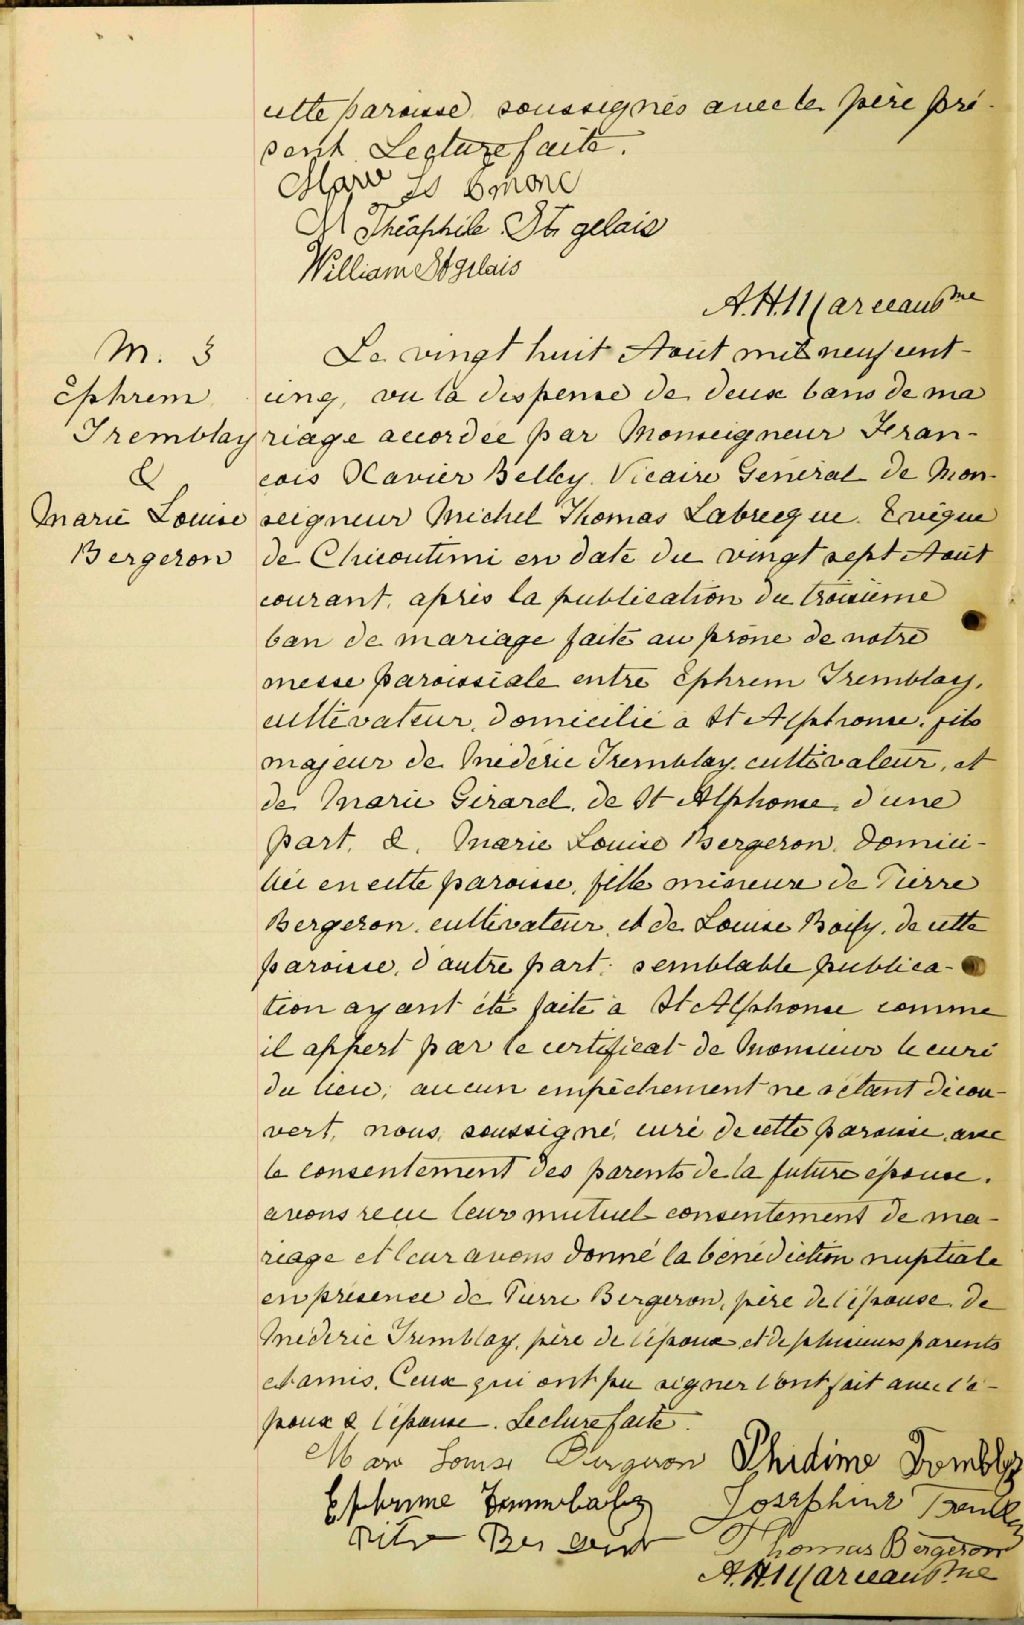 cette paroisse soussignés avec le père pré-
sent. Lecture faite.
Marie Ls Emond
M Théophile St gelais
William St gelais
A.H. Marceau Ptre
M. 3
Ephrem
Tremblay
&
Marie Louise
Bergeron
Le vingt huit Août mil neuf cent-
cinq, vu la dispense de deux bans de ma
riage accordée par Monseigneur Fran-
çois Xavier Belley Vicaire Général de Mon-
seigneur Michel Thomas Labrecque Evêque
de Chicoutimi en date du vingt sept Août
courant, après la publication du troisième
ban de mariage faite au prône de notre
messe paroissiale entre Ephrem Tremblay,
cultivateur, domicilié à St Alphonse, fils
majeur de Médéric Tremblay, cultivateur, et
de Marie Girard, de St Alphonse, d'une
part, &, Marie Louise Bergeron, domici-
liée en cette paroisse, fille mineure de Pierre
Bergeron, cultivateur, et de Louise Boily, de cette
paroisse, d'autre part; semblable publica-
tion ayant été faite à St Alphonse comme
il appert par le certificat de Monsieur le curé
du lieu; aucun empêchement ne s'étant décou-
vert, nous, soussigné, curé de cette paroisse, avec
le consentement des parents de la future épouse,
avons reçu leur mutuel consentement de ma-
riage et leur avons donné la bénédiction nuptiale
en présence de Pierre Bergeron, père de l'épouse, de
Médéric Tremblay, père de l'époux, et de plusieurs parents
et amis. Ceux qui ont pu signer l'ont fait avec l'é-
poux & l'épouse. Lecture faite.
Mari Louise Bergeron Phidime Tremblay
Josephine
Bergeron Thomas Bergeron
A.H. Marceau Ptre